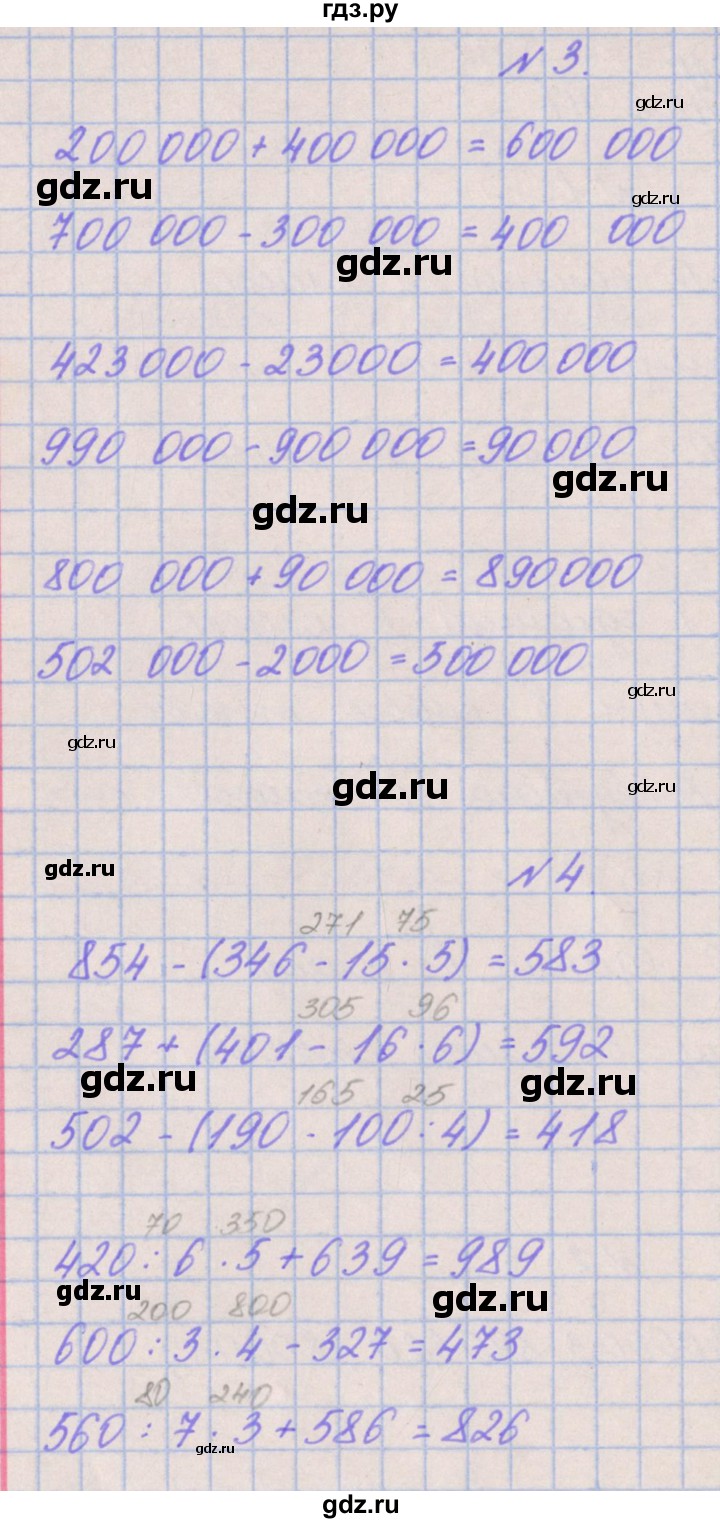 гдз.ру
N 3.
gdz.ru
200 000 + 400 000 = 600 000
gdz.ru
gdz.ru
700 000 - 300 000 = 400 000
gdz.ru
423 000 - 23000 = 400 000
990 000 - 900 000 = 90 000
gdz.ru
gdz.ru
800 000 + 90 000 = 890 000
502 000 - 2000 = 500 000
gdz.ru
gdz.ru
gdz.ru
gdz.ru
gdz.ru
N 4.
271 75
854 - (346 - 15 · 5) = 583
305 96
287 + (401 - 16 · 6) = 592
gdz.ru
gdz.ru
165 25
502 - (190 - 100 : 4) = 418
70 350
420 : 6 · 5 + 639 = 989
gdz.ru
gdz.ru
200 800
600 : 3 · 4 - 327 = 473
80 240
560 : 7 · 3 + 586 = 826
gdz.ru
gdz.ru